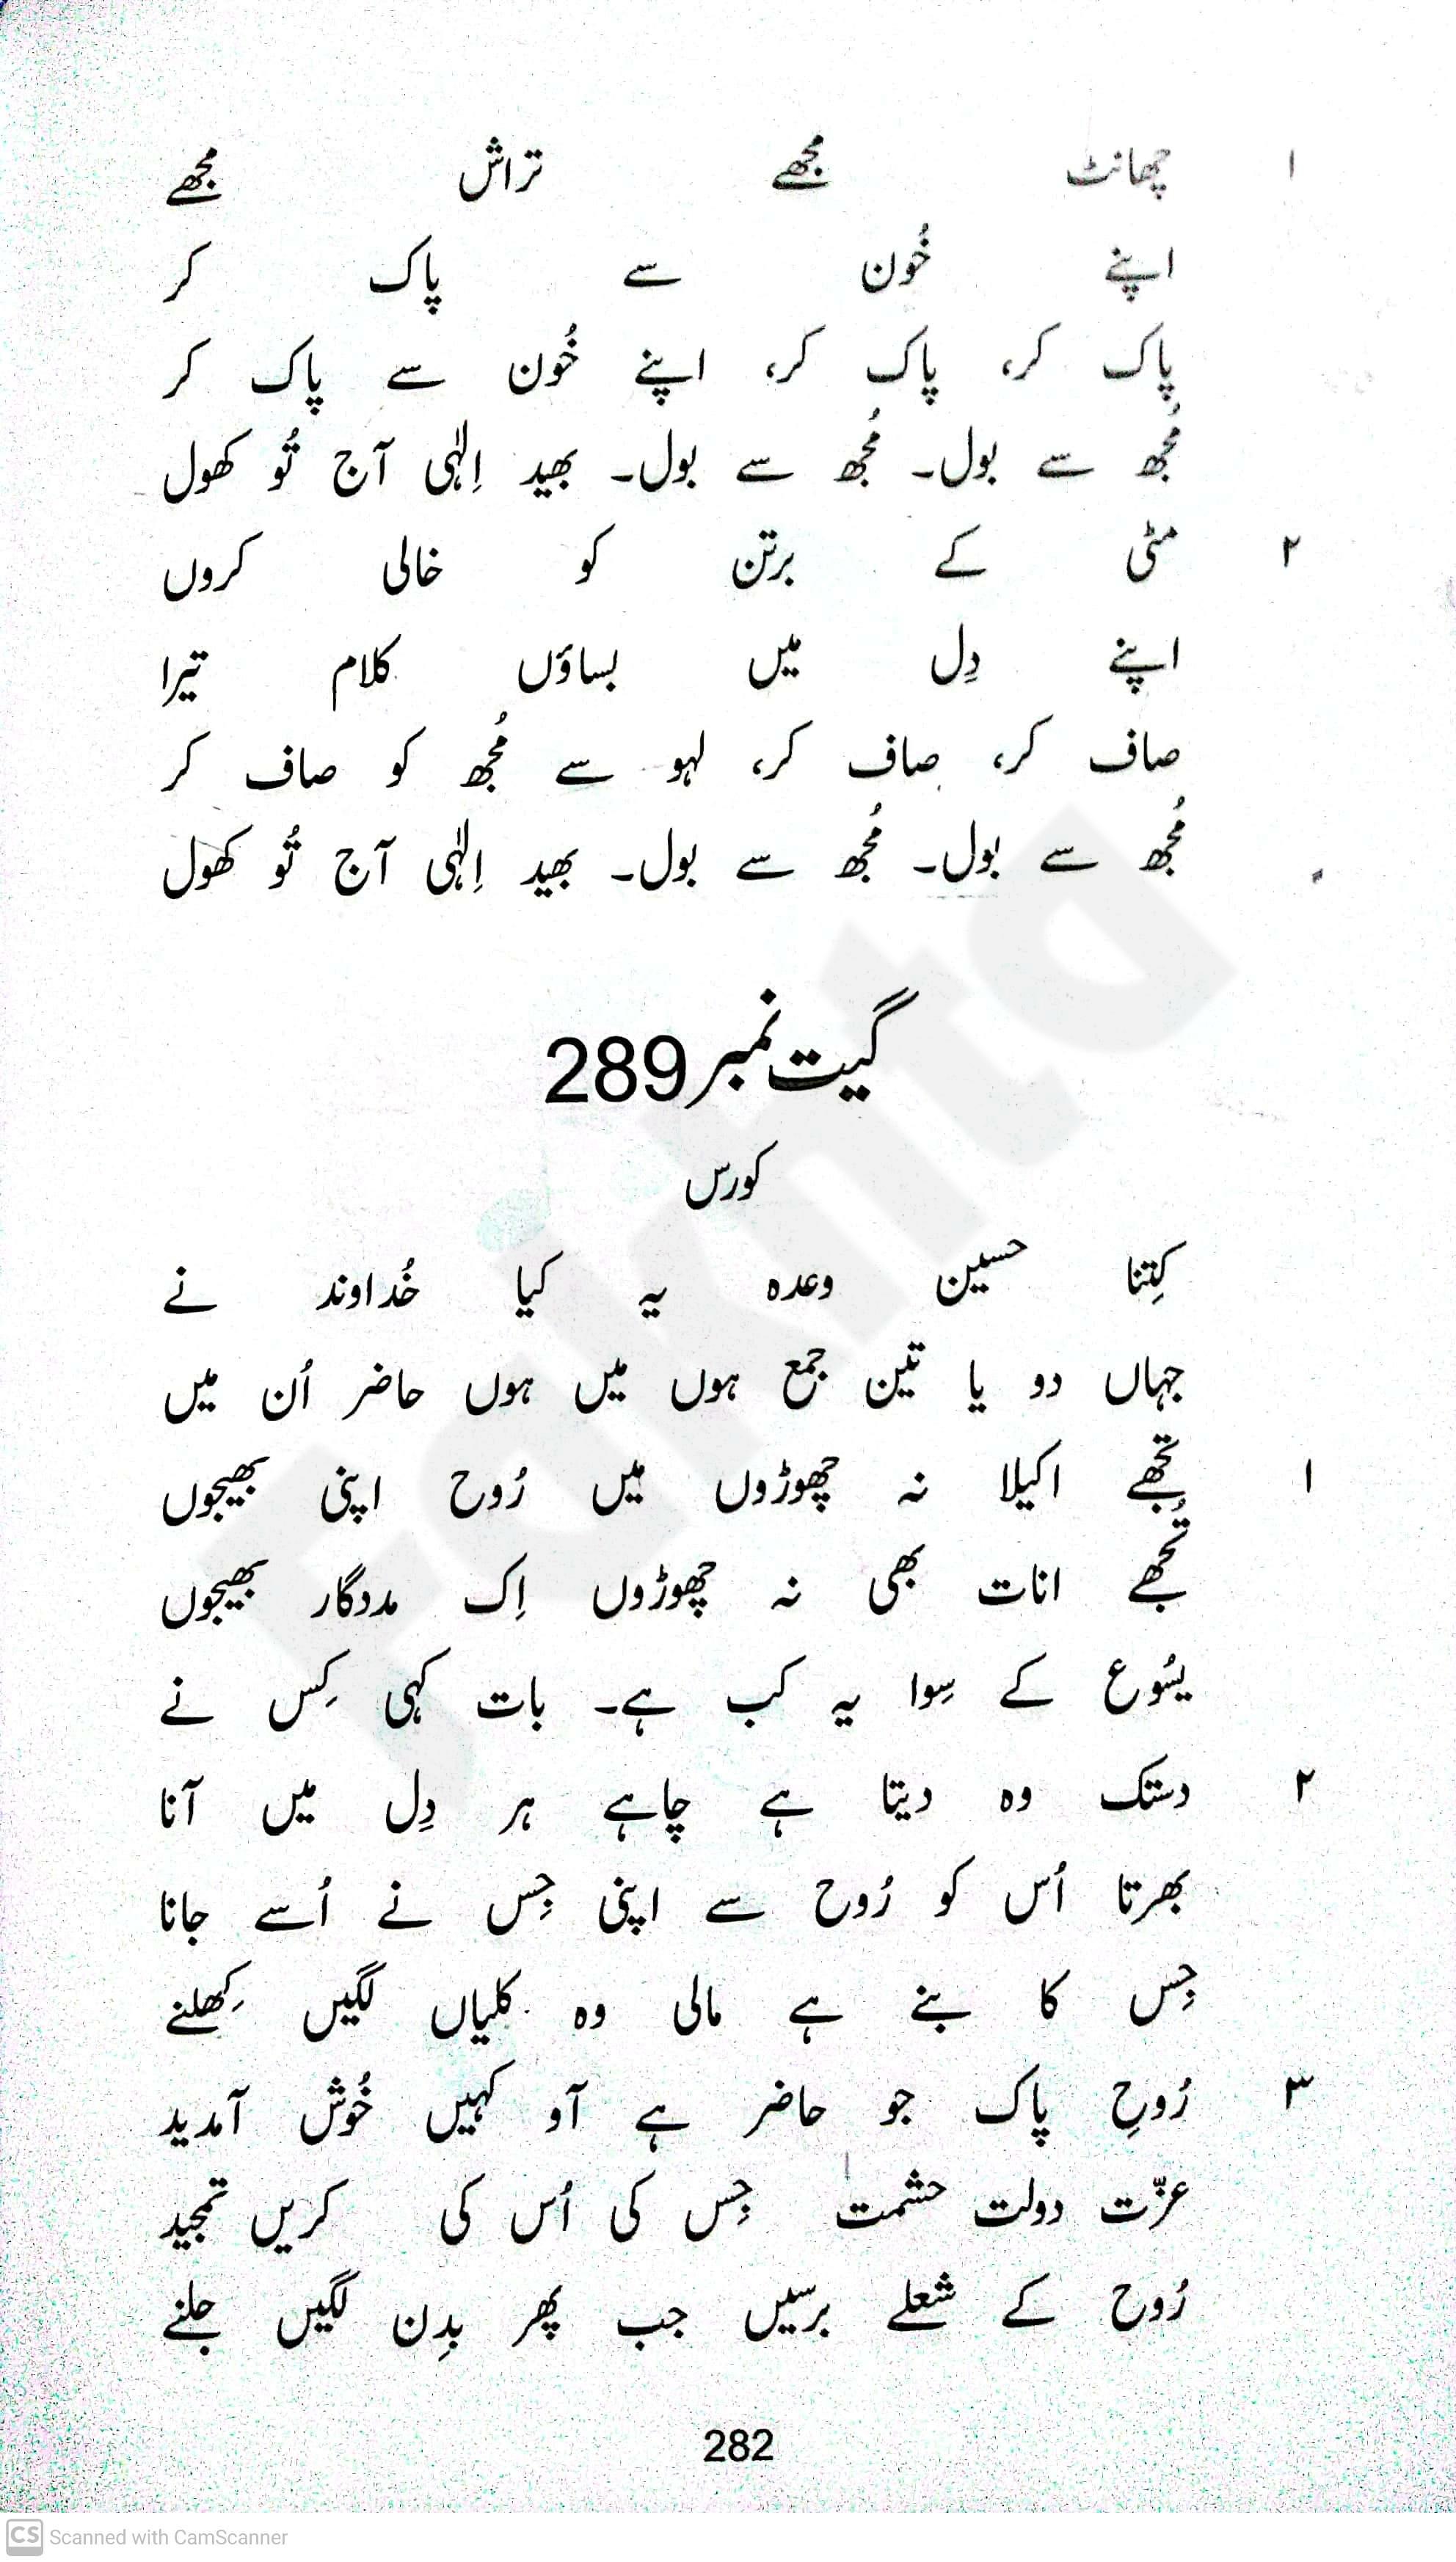 ۱ چھانٹ مجھے تراش مجھے
اپنے خُون سے پاک کر
پاک کر، پاک کر، اپنے خُون سے پاک کر
مُجھ سے بول۔ مُجھ سے بول۔ بھید اِلٰہی آج تُو کھول
۲ مٹی کے برتن کو خالی کروں
اپنے دِل میں بساؤں کلام تیرا
صاف کر، صاف کر، لہو سے مُجھ کو صاف کر
مُجھ سے بول۔ مُجھ سے بول۔ بھید اِلٰہی آج تُو کھول
گیت نمبر 289
کورس
کِتنا حسین وعدہ یہ کیا خُداوند نے
جہاں دو یا تین جمع ہوں میں ہوں حاضر اُن میں
۱ تُجھے اکیلا نہ چھوڑوں میں رُوح اپنی بھیجوں
تُجھے انات بھی نہ چھوڑوں اِک مددگار بھیجوں
یسُوع کے سِوا یہ کب ہے۔ بات کہی کِس نے
۲ دستک وہ دیتا ہے چاہے ہر دِل میں آنا
بھرتا اُس کو رُوح سے اپنی جِس نے اُسے جانا
جِس کا بنے ہے مالی وہ کلیاں لگیں کِھلنے
۳ رُوحِ پاک جو حاضر ہے آو کہیں خُوش آمدید
عزّت دولت حشمت جِس کی اُس کی کریں تمجید
رُوح کے شعلے برسیں جب پھر بدِن لگیں جلنے
282
Fakhta
CS Scanned with CamScanner